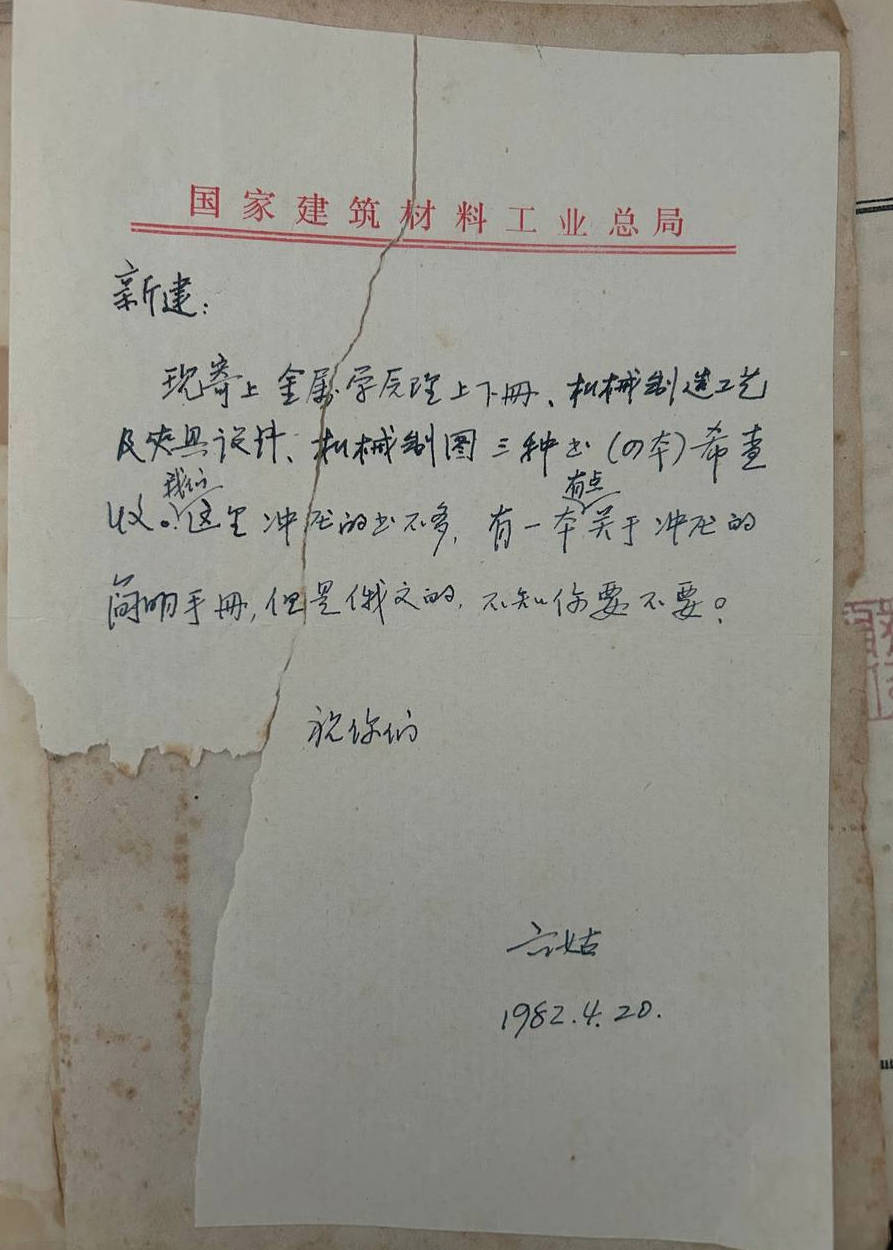 国家建筑材料工业总局
新建：
现寄上金属学原理上下册、机械制造工艺
及夹具设计、机械制图三种书（四本）希查
收。我们这里冲压的书不多，有一本有点关于冲压的
简明手册，但是俄文的，不知你要不要？
祝你们
六姑
1982.4.20.